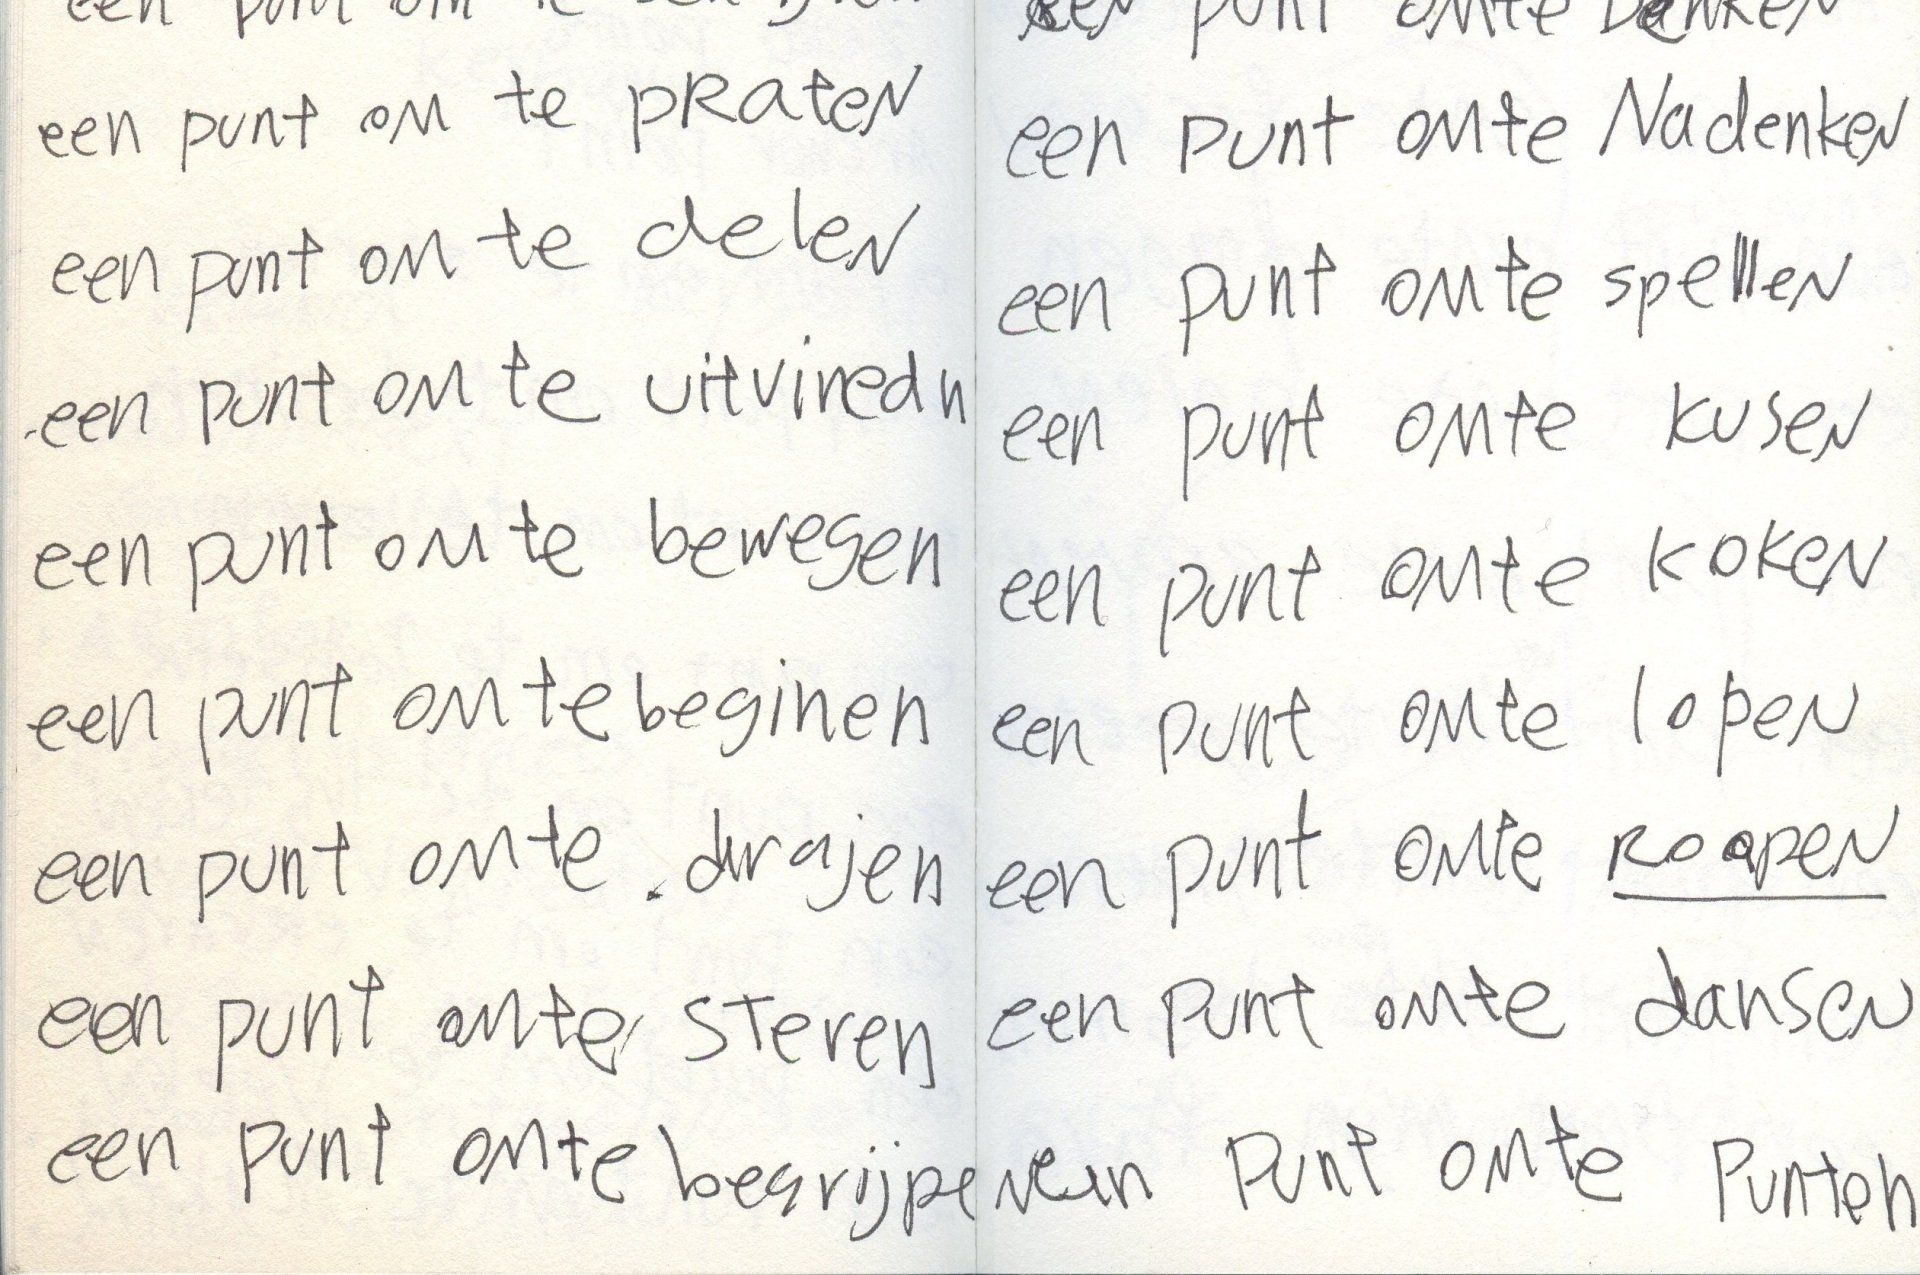 een punt om te
een punt om te praten
een punt om te delen
een punt om te uitviredn
een punt om te bewegen
een punt om te beginen
een punt om te drajen
een punt om te steren
een punt om te begrijpen
een punt om te Danken
een punt om te Nadenken
een punt om te spellen
een punt om te kusen
een punt om te koken
een punt om te lopen
een punt om te roopen
een punt om te dansen
een punt om te punten